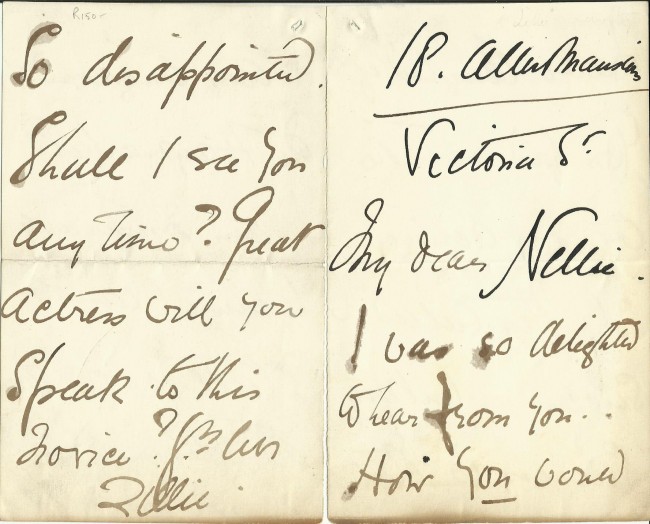 18. Albert Mansions
Victoria St
My dear Nellie.
I was so delighted
to hear from you..
How you would
So disappointed.
Shall I see you
any time? Great
actress will you
speak to this
novice? Yrs ever
Lillie.